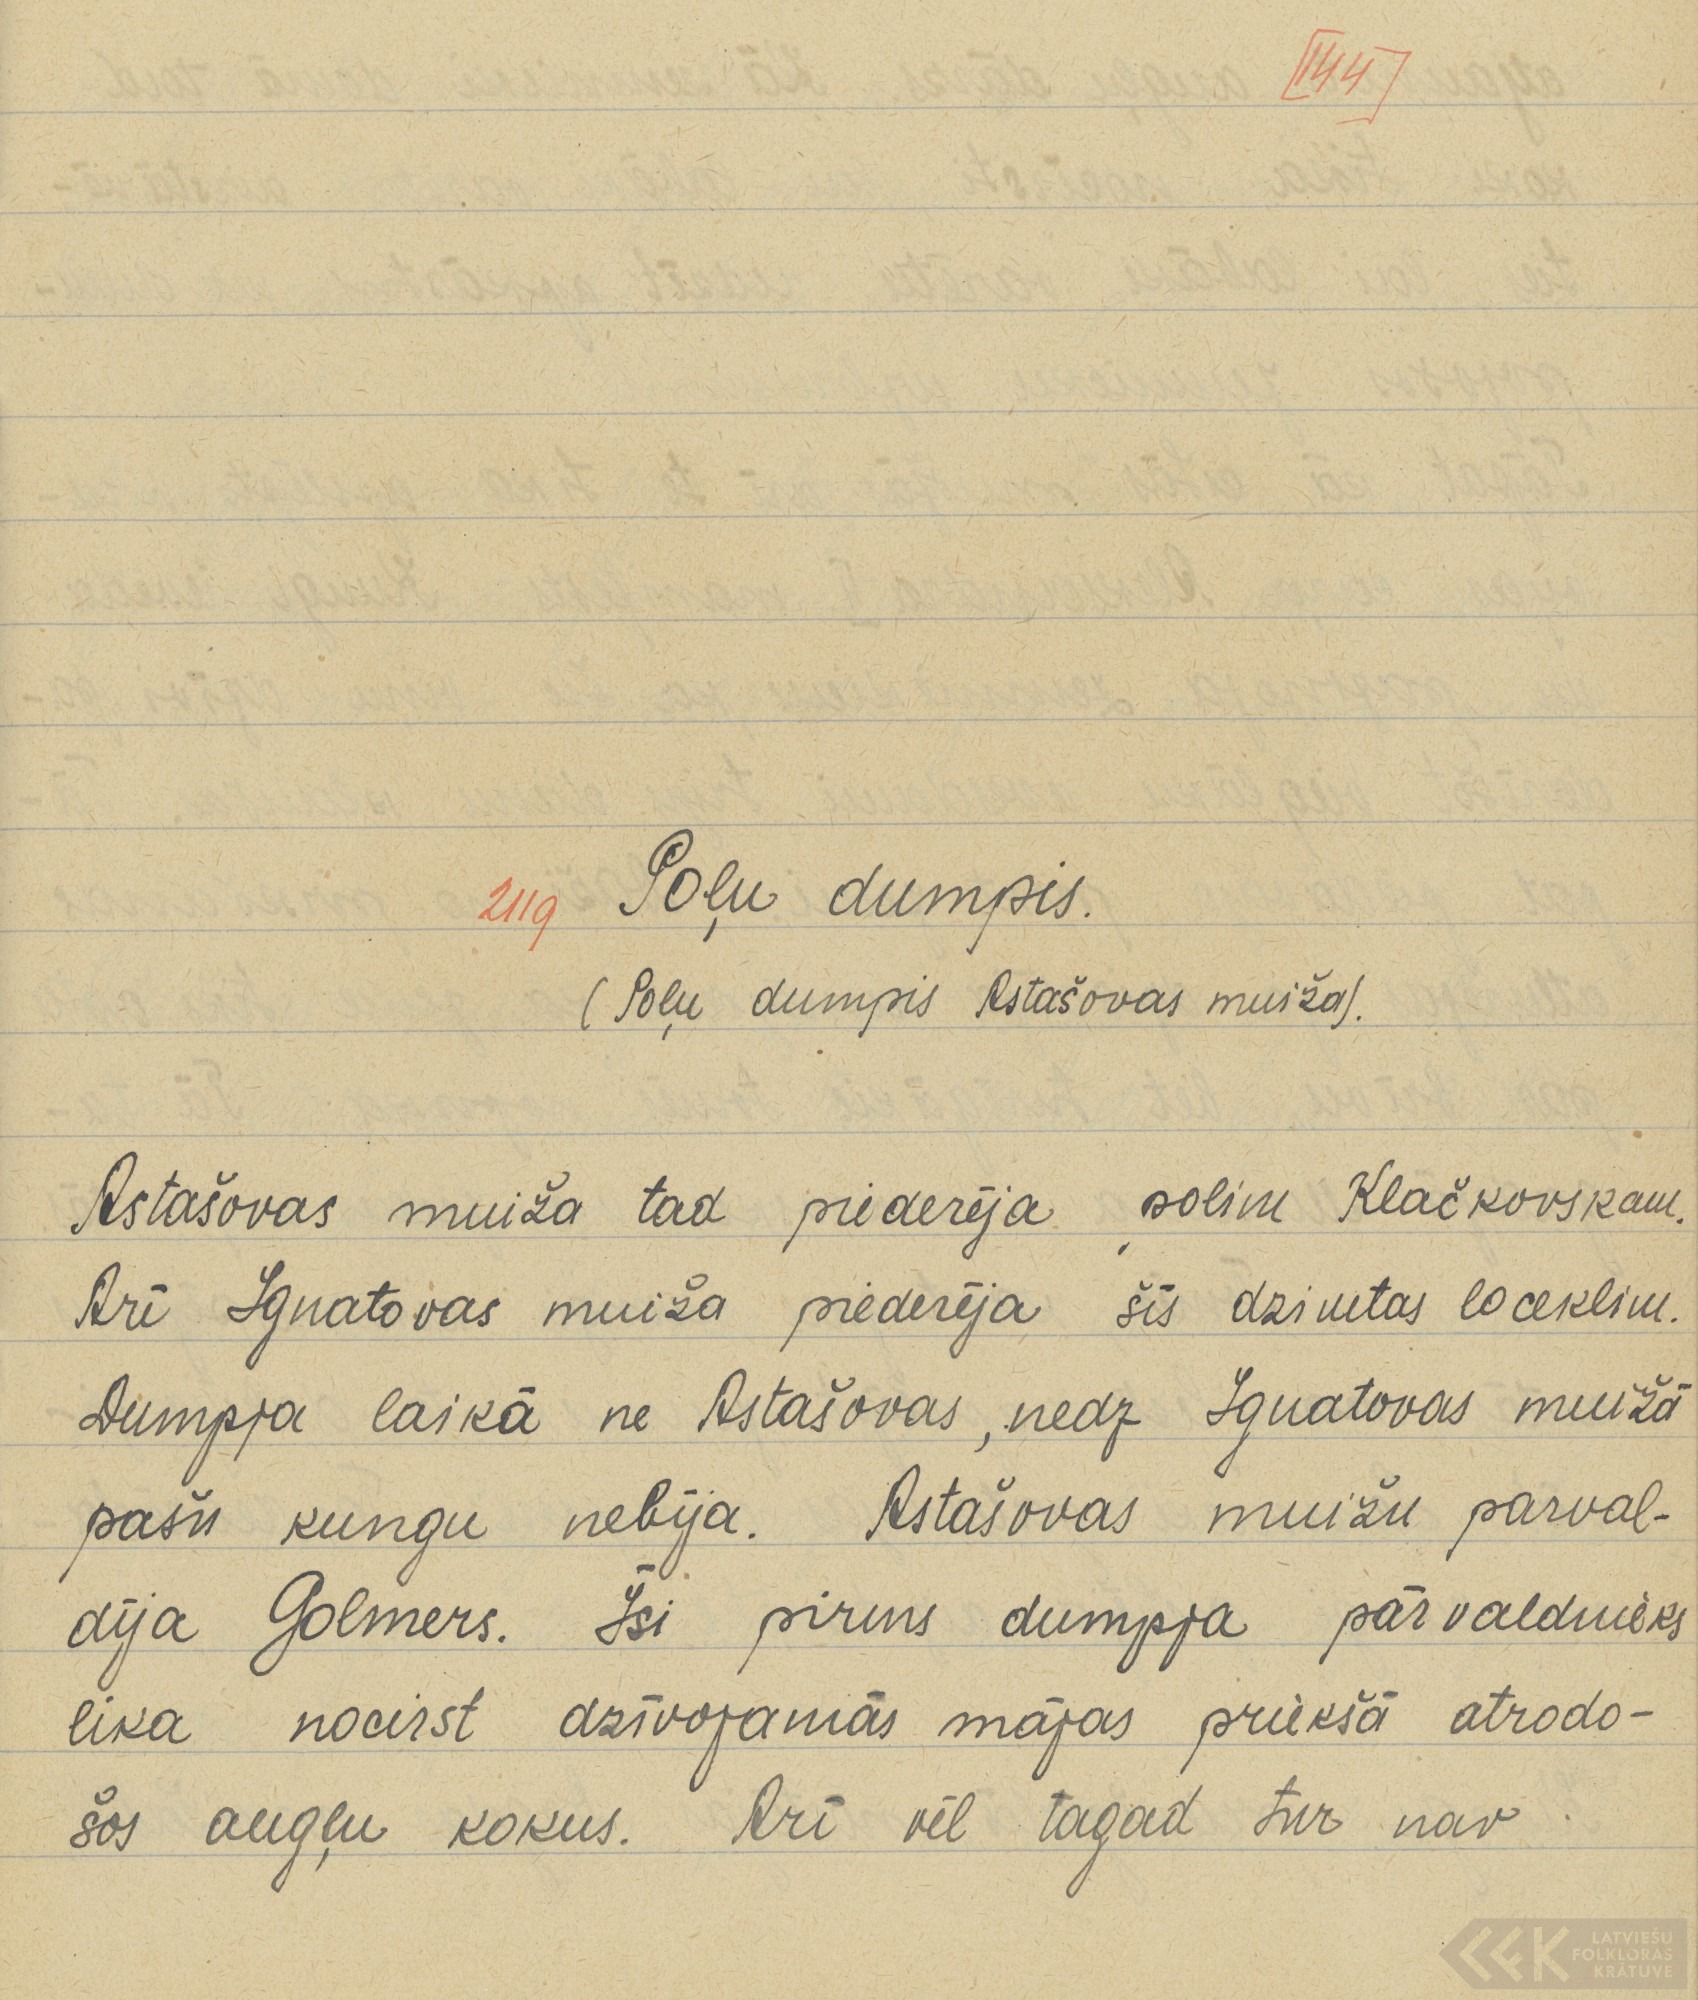 [144]
2119 Poļu dumpis.
(Poļu dumpis Astašovas muiža).
Astašovas muiža tad piederēja polim Klačkovskam.
Arī Ignatovas muiža piederēja šīs dzimtas loceklim.
Dumpja laikā ne Astašovas, nedz Ignatovas muižā
pašu kungu nebija. Astašovas muižu parval-
dīja Golmers. Īsi pirms dumpja pārvaldnieks
lika nocirst dzīvojamās mājas priekšā atrodo-
šos augļu kokus. Arī vēl tagad tur nav
LATVIEŠU
FOLKLORAS
KRĀTUVE